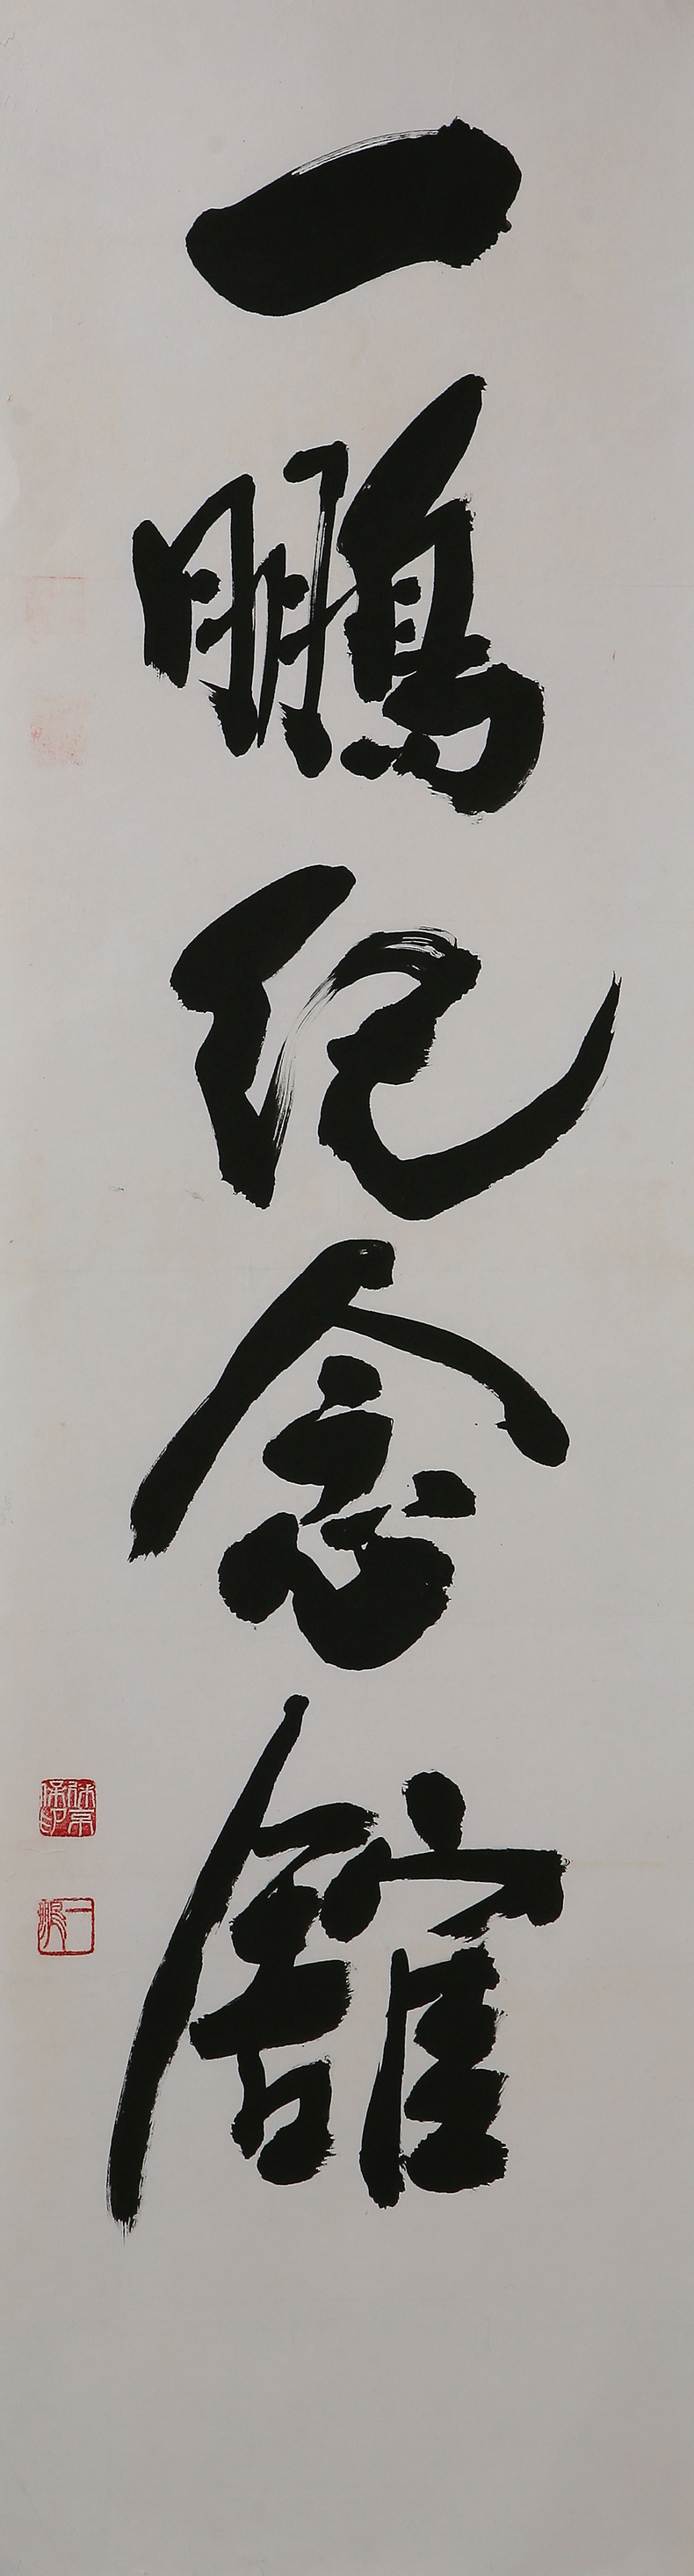 一鵬紀念舘
一鵬